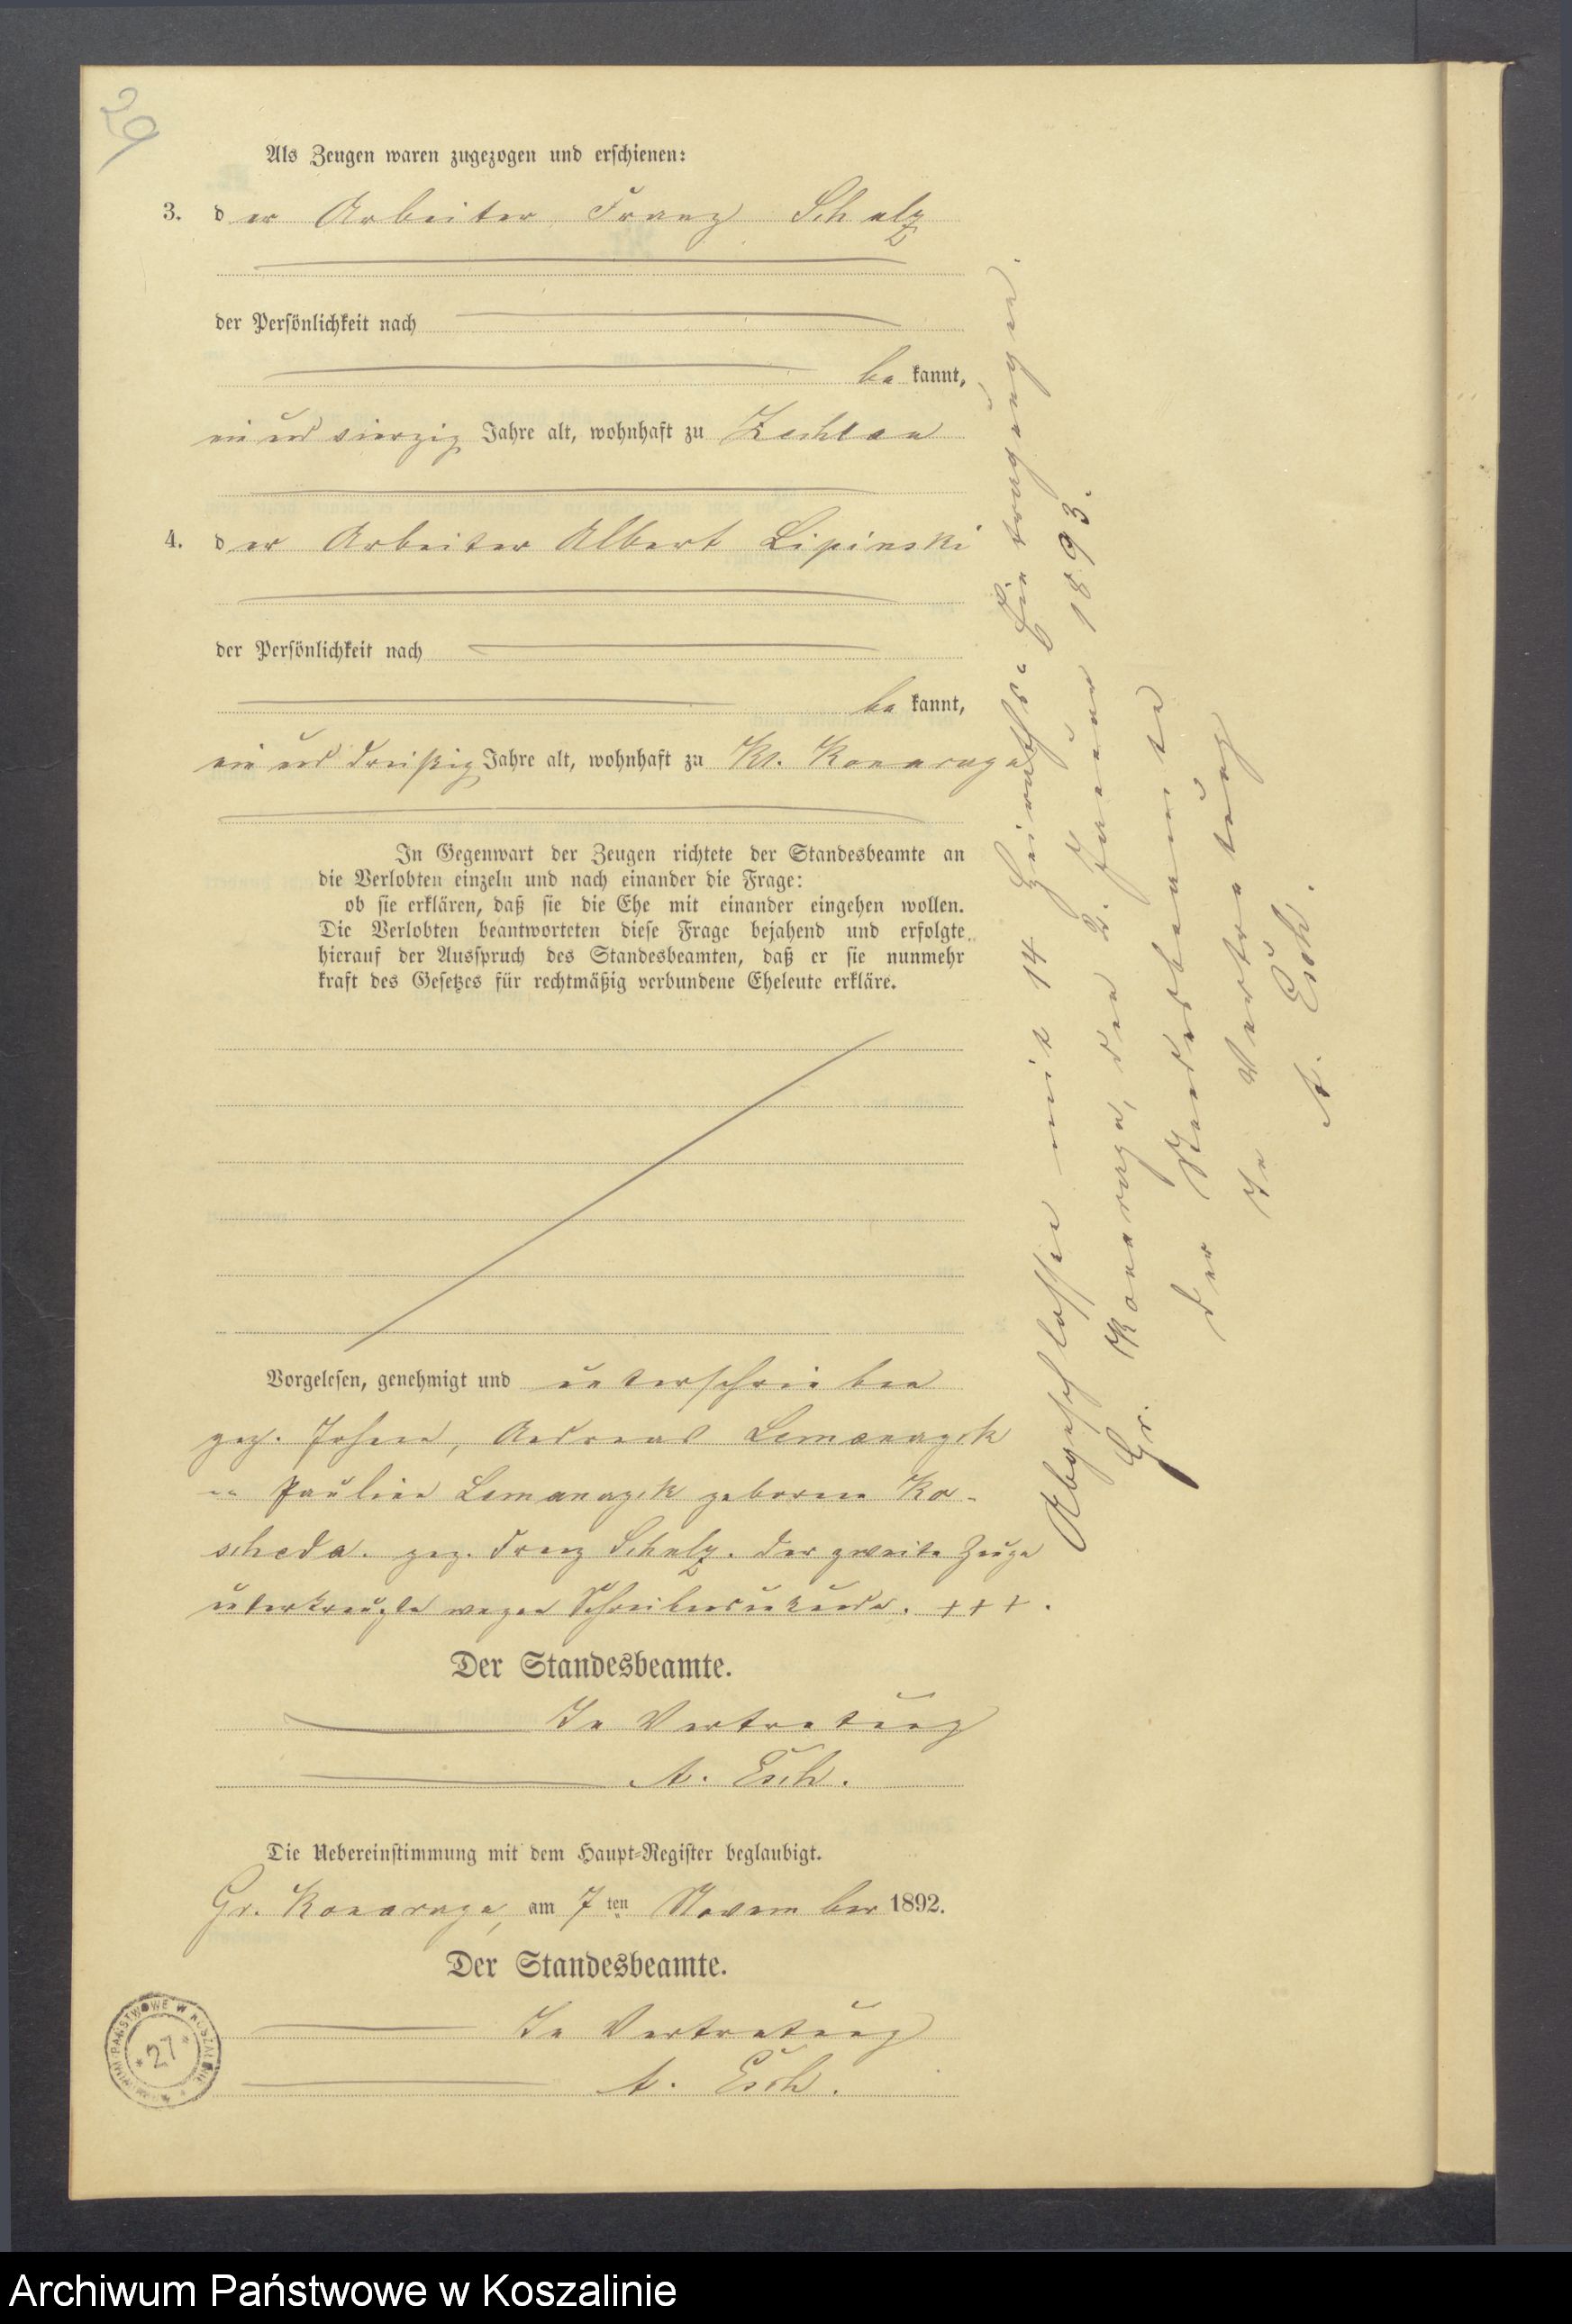 29
Als Zeugen waren zugezogen und erschienen:
3. der Arbeiter Franz Schulz
der Persönlichkeit nach
be kannt,
ein und vierzig Jahre alt, wohnhaft zu Zechlau
4. der Arbeiter Albert Lipinski
der Persönlichkeit nach
be kannt,
ein und dreißig Jahre alt, wohnhaft zu Kl. Konarczyn
In Gegenwart der Zeugen richtete der Standesbeamte an
die Verlobten einzeln und nach einander die Frage:
ob sie erklären, daß sie die Ehe mit einander eingehen wollen.
Die Verlobten beantworteten diese Frage bejahend und erfolgte
hierauf der Ausspruch des Standesbeamten, daß er sie nunmehr
kraft des Gesetzes für rechtmäßig verbundene Eheleute erkläre.
Vorgelesen, genehmigt und unterschrieben
gez. Johann, Andreas Lemanczyk
" Pauline Lemanczyk geborene Ko-
scheda. gez. Franz Schulz. Der zweite Zeuge
unterkreuzte wegen Schreibensunkunde. +++.
Der Standesbeamte.
In Vertretung
A. Esch.
Die Uebereinstimmung mit dem Haupt-Register beglaubigt.
Gr. Konarczyn, am 7ten November 1892.
Der Standesbeamte.
In Vertretung
A. Esch.
Abgeschlossen mit 14 Heiraths-Eintragungen.
Gr. Konarczyn, den 2. Januar 1893.
Der Standesbeamte
In Vertretung
A. Esch.
ARCHIWUM PAŃSTWOWE W KOSZALINIE
* 27 *
Archiwum Państwowe w Koszalinie